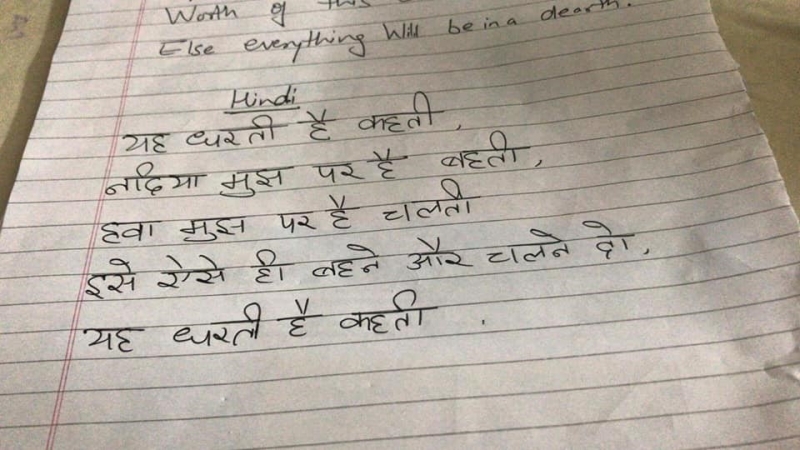 Worth of this
Else everything Will be in a dearth.
Hindi
यह धरती है कहती,
नदिया मुझ पर है बहती,
हवा मुझ पर है चलती
इसे ऐसे ही बहने और चलने दो,
यह धरती है कहती .